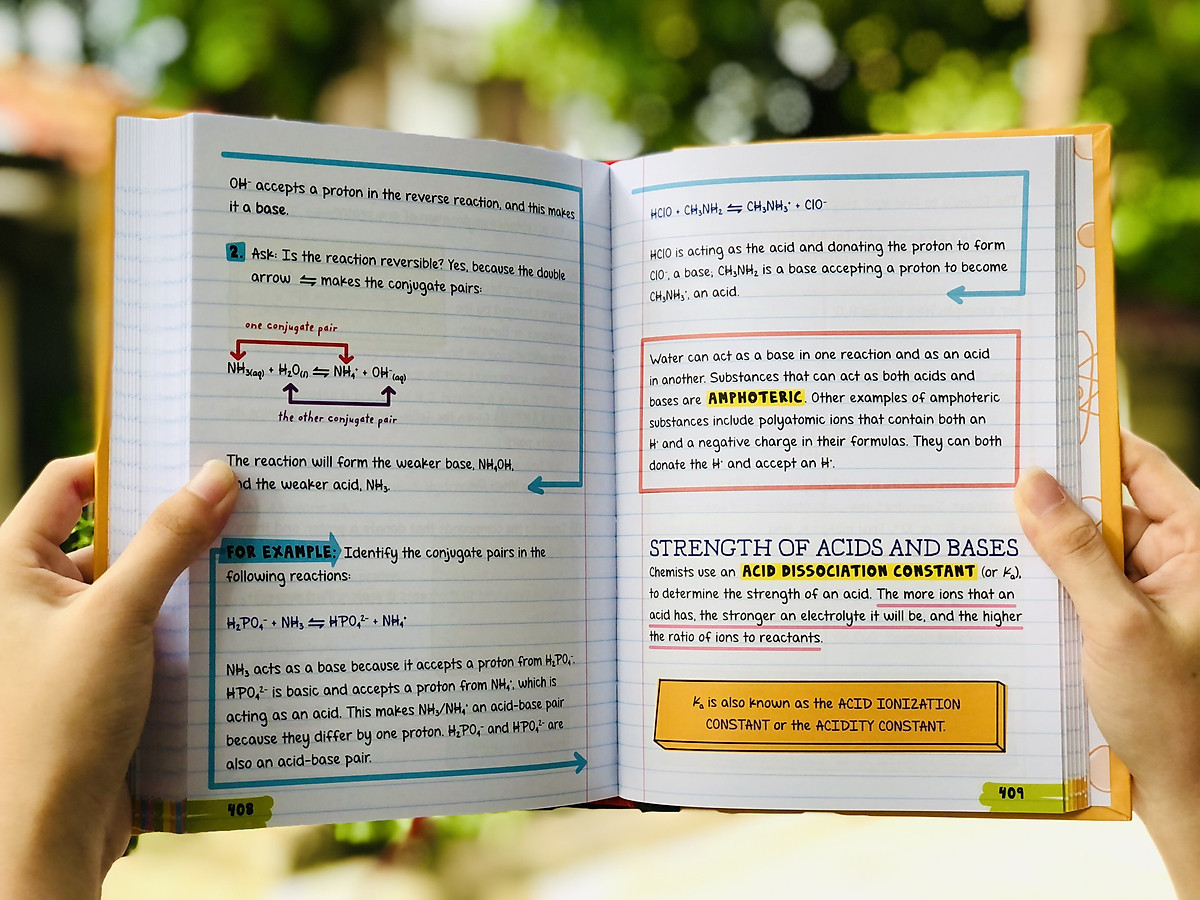 OH⁻ accepts a proton in the reverse reaction, and this makes
it a base.
2. Ask: Is the reaction reversible? Yes, because the double
arrow ⇋ makes the conjugate pairs:
one conjugate pair
NH₃(aq) + H₂O(l) ⇋ NH₄⁺ + OH⁻(aq)
the other conjugate pair
The reaction will form the weaker base, NH₄OH,
nd the weaker acid, NH₃.
FOR EXAMPLE: Identify the conjugate pairs in the
following reactions:
H₂PO₄⁻ + NH₃ ⇋ HPO₄²⁻ + NH₄⁺
NH₃ acts as a base because it accepts a proton from H₂PO₄⁻.
HPO₄²⁻ is basic and accepts a proton from NH₄⁺, which is
acting as an acid. This makes NH₃/NH₄⁺ an acid-base pair
because they differ by one proton. H₂PO₄⁻ and HPO₄²⁻ are
also an acid-base pair.
408
HClO + CH₃NH₂ ⇋ CH₃NH₃⁺ + ClO⁻
HClO is acting as the acid and donating the proton to form
ClO⁻, a base; CH₃NH₂ is a base accepting a proton to become
CH₃NH₃⁺, an acid.
Water can act as a base in one reaction and as an acid
in another. Substances that can act as both acids and
bases are AMPHOTERIC. Other examples of amphoteric
substances include polyatomic ions that contain both an
H⁺ and a negative charge in their formulas. They can both
donate the H⁺ and accept an H⁺.
STRENGTH OF ACIDS AND BASES
Chemists use an ACID DISSOCIATION CONSTANT (or Kₐ),
to determine the strength of an acid. The more ions that an
acid has, the stronger an electrolyte it will be, and the higher
the ratio of ions to reactants.
Kₐ is also known as the ACID IONIZATION
CONSTANT or the ACIDITY CONSTANT.
409